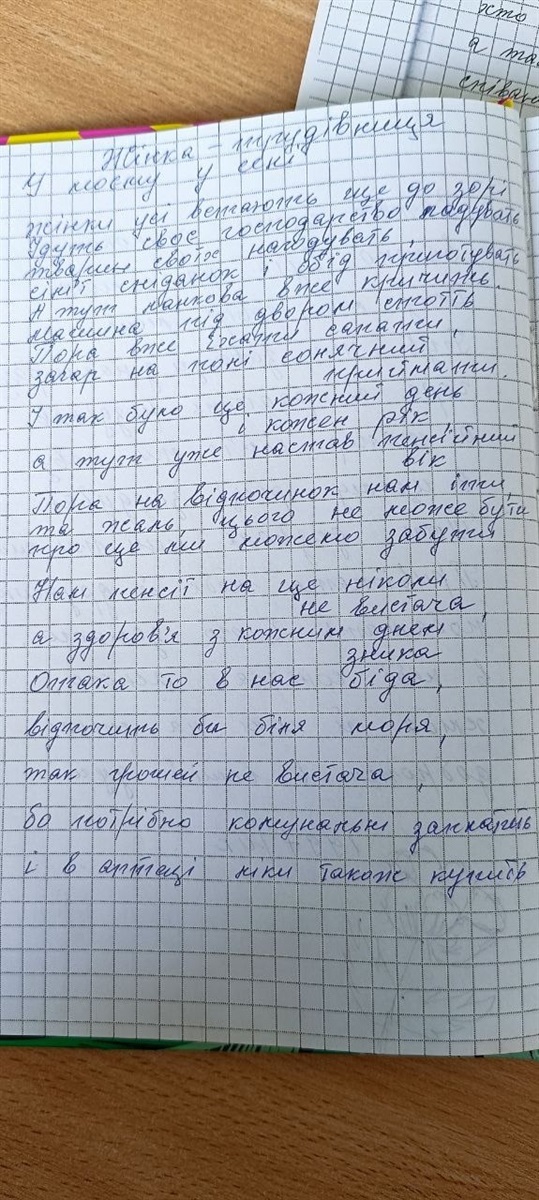 хто
а та
співа
Жінка - трудівниця
У моєму у селі
жінки усі встають ще до зорі
Ідуть своє господарство годувать
тварин своїх нагодувать,
сім'ї сніданок і обід приготувать
А тут ланкова вже кричить.
Машина під двором стоїть
Пора вже їхати сапати,
загар на полі сонячний
приймати.
І так було це кожний день
і кожен рік
а тут уже настав пенсійний
вік
Пора на відпочинок нам іти,
та жаль, цього не може бути
про це ми можемо забути
Нам пенсії на це ніколи
не вистача,
а здоров'я з кожним днем
зника
Отака то в нас біда,
відпочить би біля моря,
так грошей не вистача,
бо потрібно комунальні заплатить
і в аптеці ліки також купить